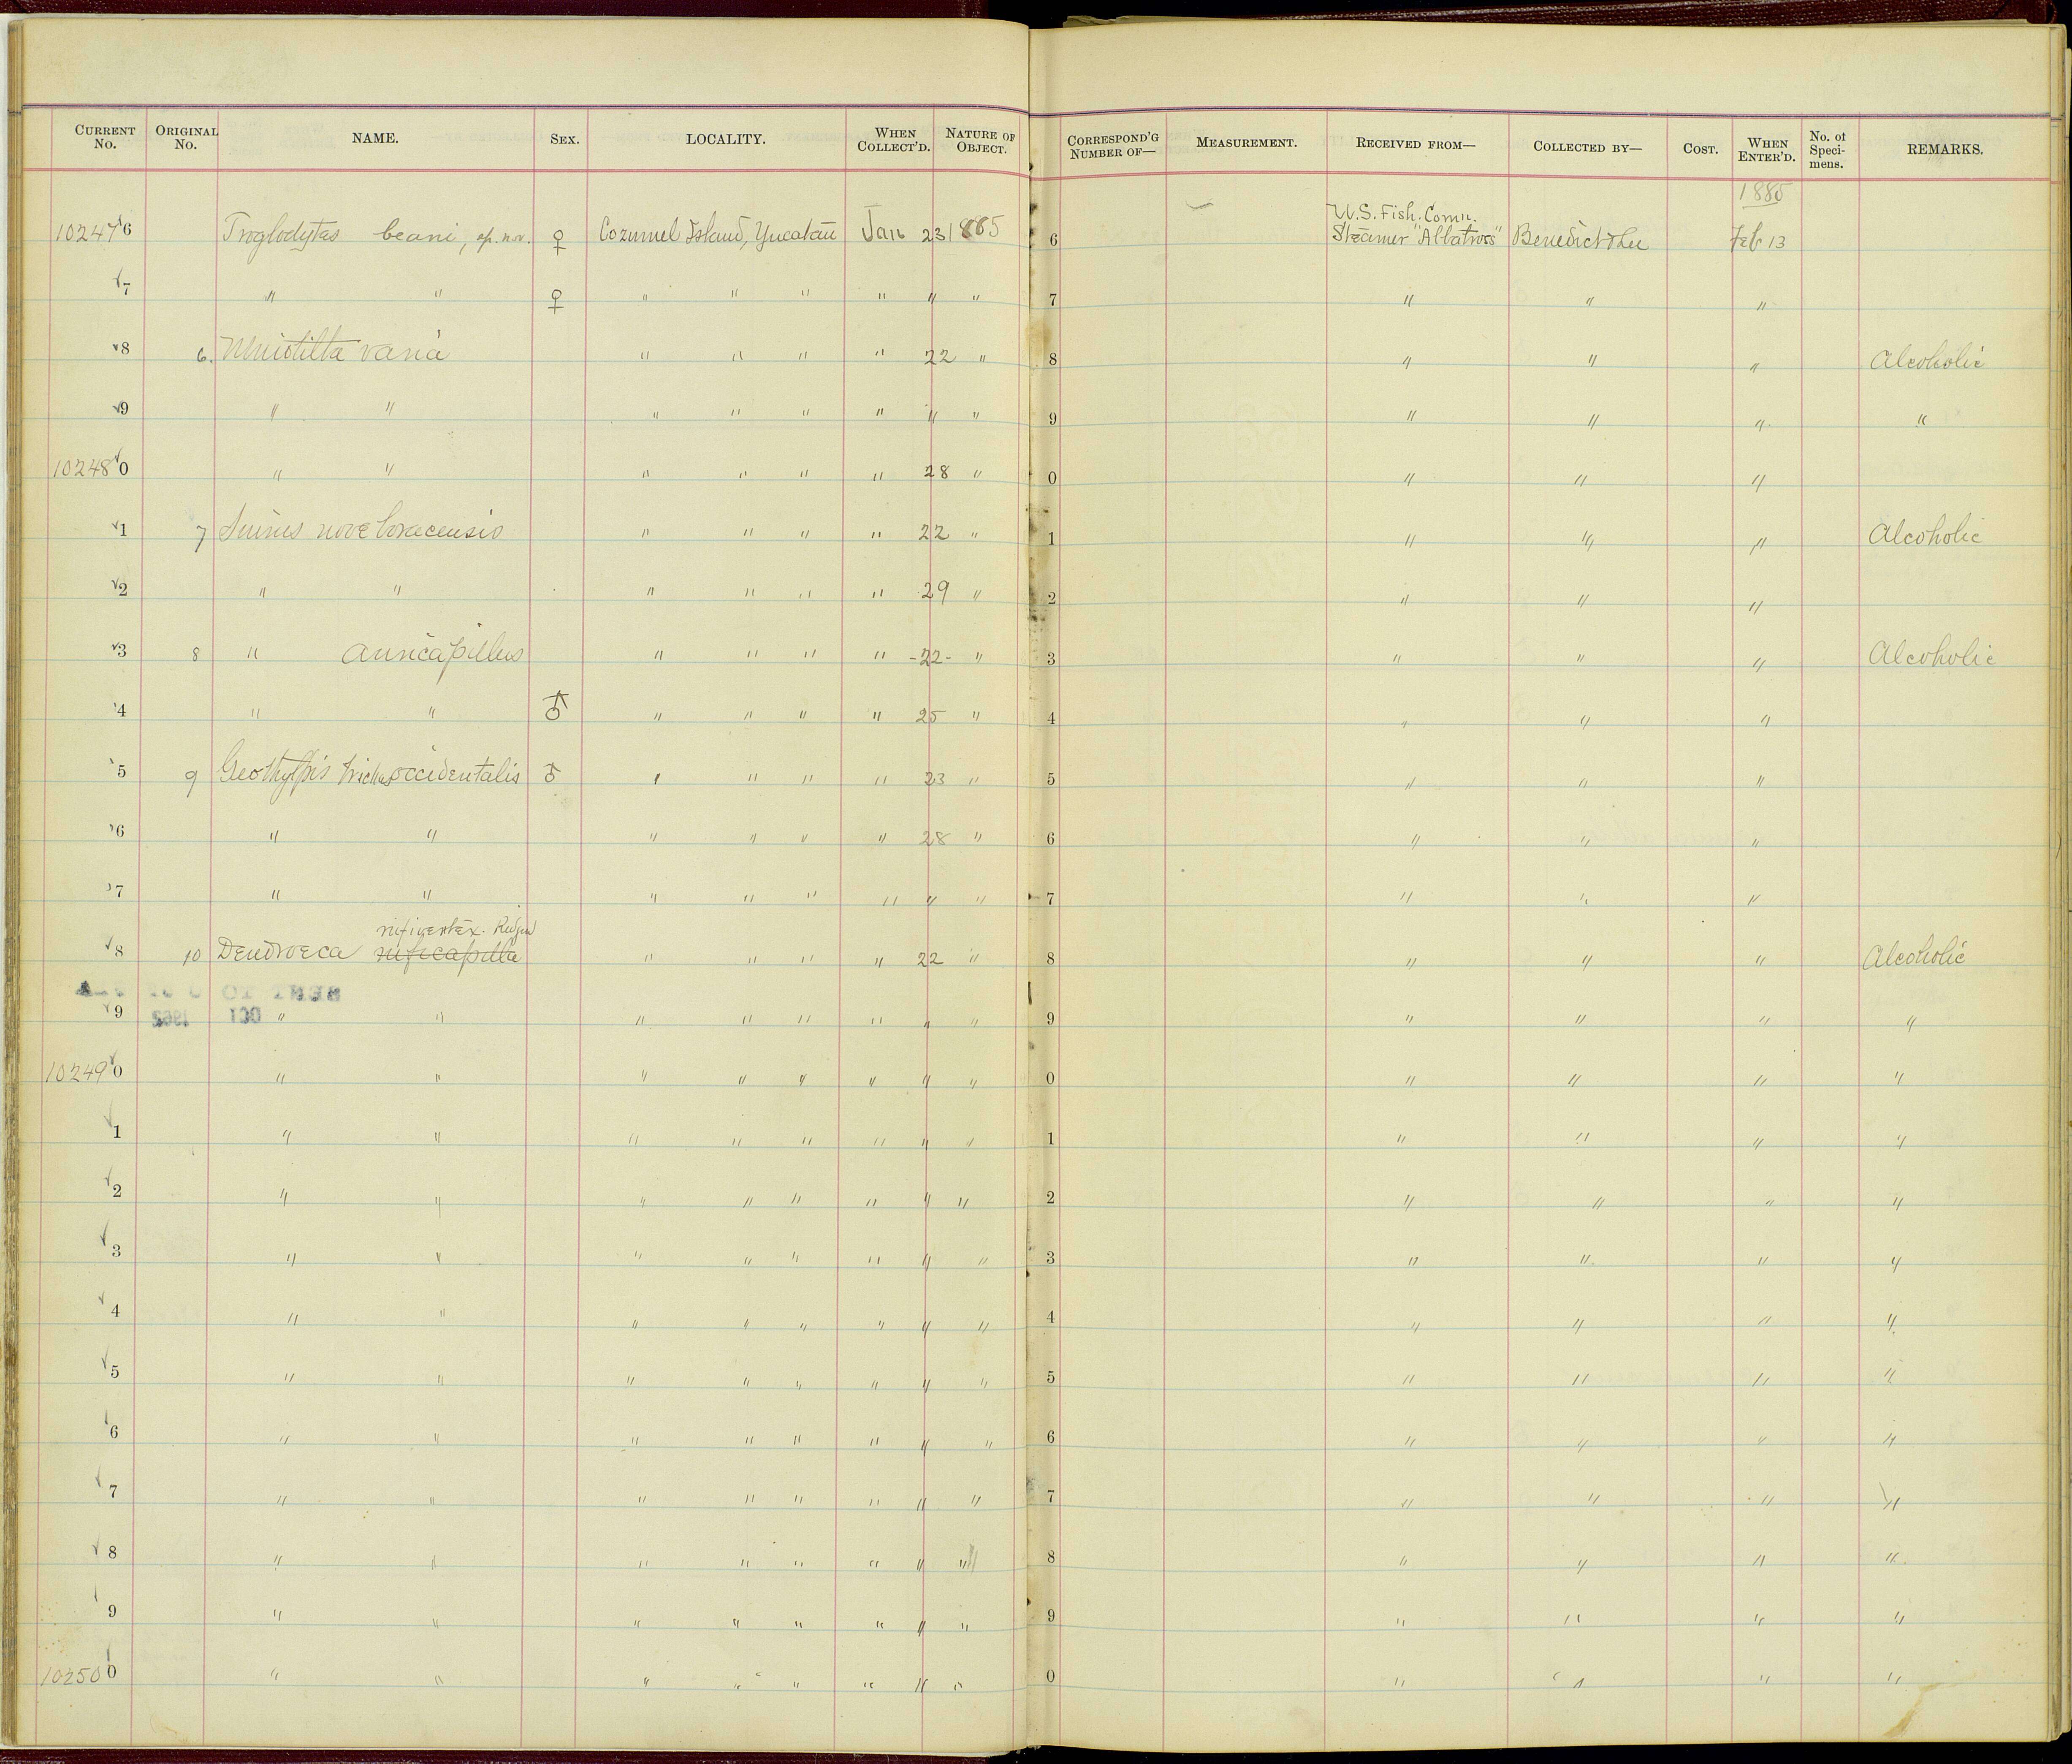 CURRENT No. ORIGINAL No. NAME. SEX. LOCALITY. WHEN COLLECT'D. NATURE OF OBJECT. CORRESPOND'G NUMBER OF— MEASUREMENT. RECEIVED FROM— COLLECTED BY— COST. WHEN ENTER'D. No. of Speci-mens. REMARKS.
1885
102476 Troglodytes beani, sp. nov. ♀ Cozumel Island, Yucatan Jan 23 1885 6 U.S. Fish. Comn. Steamer "Albatross" Benedict & Lee Feb 13
7 " " ♀ " " " " " " 7 " " "
8 6. Mniotilta varia " " " " 22 " 8 " " " Alcoholic
9 " " " " " " " " 9 " " " "
102480 " " " " " " 28 " 0 " " "
1 7 Siurus noveboracensis " " " " 22 " 1 " " " Alcoholic
2 " " " " " " 29 " 2 " " "
3 8 " auricapillus " " " " -22- " 3 " " " Alcoholic
4 " " ♂ " " " " 25 " 4 " " "
5 9 Geothlypis trichas occidentalis ♂ " " " " 23 " 5 " " "
6 " " " " " " 28 " 6 " " "
7 " " " " " " " " 7 " " "
rufivertex. Ridgw
8 10 Dendroeca ruficapilla " " " " 22 " 8 " " " Alcoholic
9 " " " " " " " " 9 " " " "
OCT
102490 " " " " " " " " 0 " " " "
1 " " " " " " " " 1 " " " "
2 " " " " " " " " 2 " " " "
3 " " " " " " " " 3 " " " "
4 " " " " " " " " 4 " " " "
5 " " " " " " " " 5 " " " "
6 " " " " " " " " 6 " " " "
7 " " " " " " " " 7 " " " "
8 " " " " " " " " 8 " " " "
9 " " " " " " " " 9 " " " "
102500 " " " " " " " " 0 " " " "